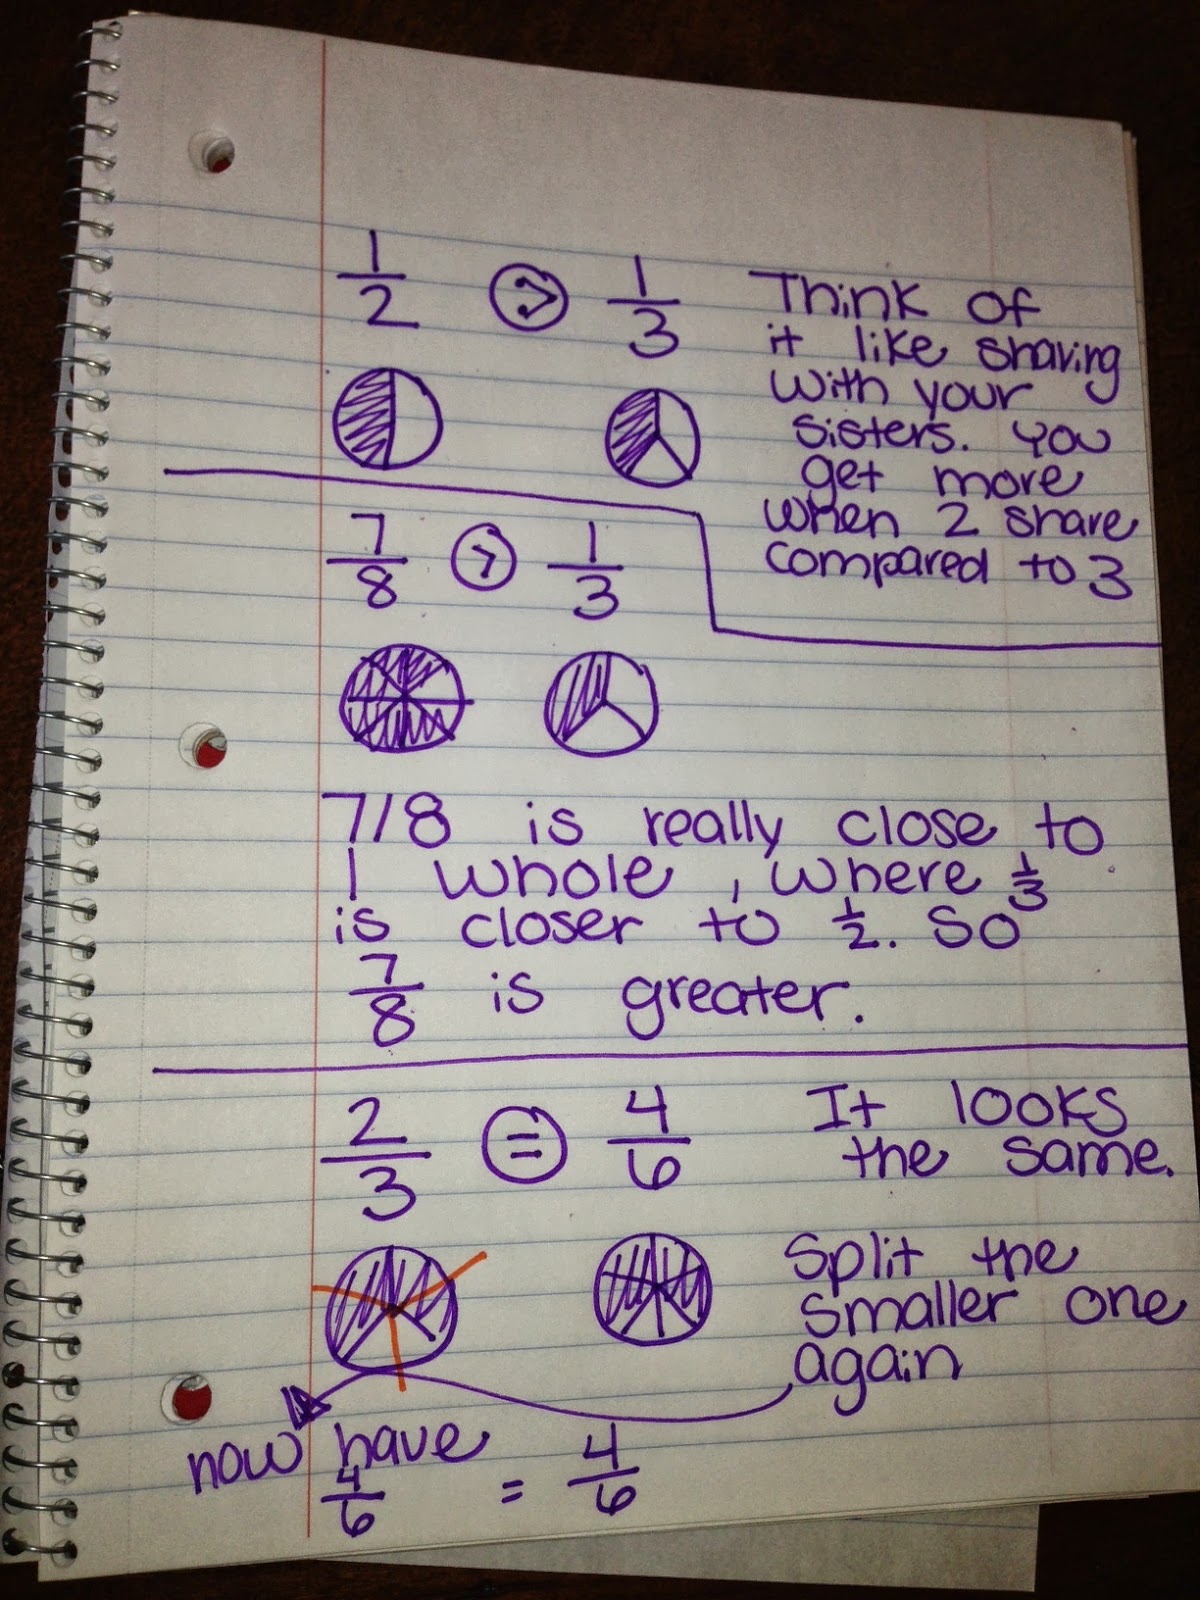 1/2 > 1/3
Think of
it like sharing
with your
sisters. You
get more
when 2 share
compared to 3
7/8 > 1/3
7/8 is really close to
1 whole, where 1/3
is closer to 1/2. So
7/8 is greater.
2/3 = 4/6
It looks
the same.
Split the
smaller one
again
now have
4/6 = 4/6